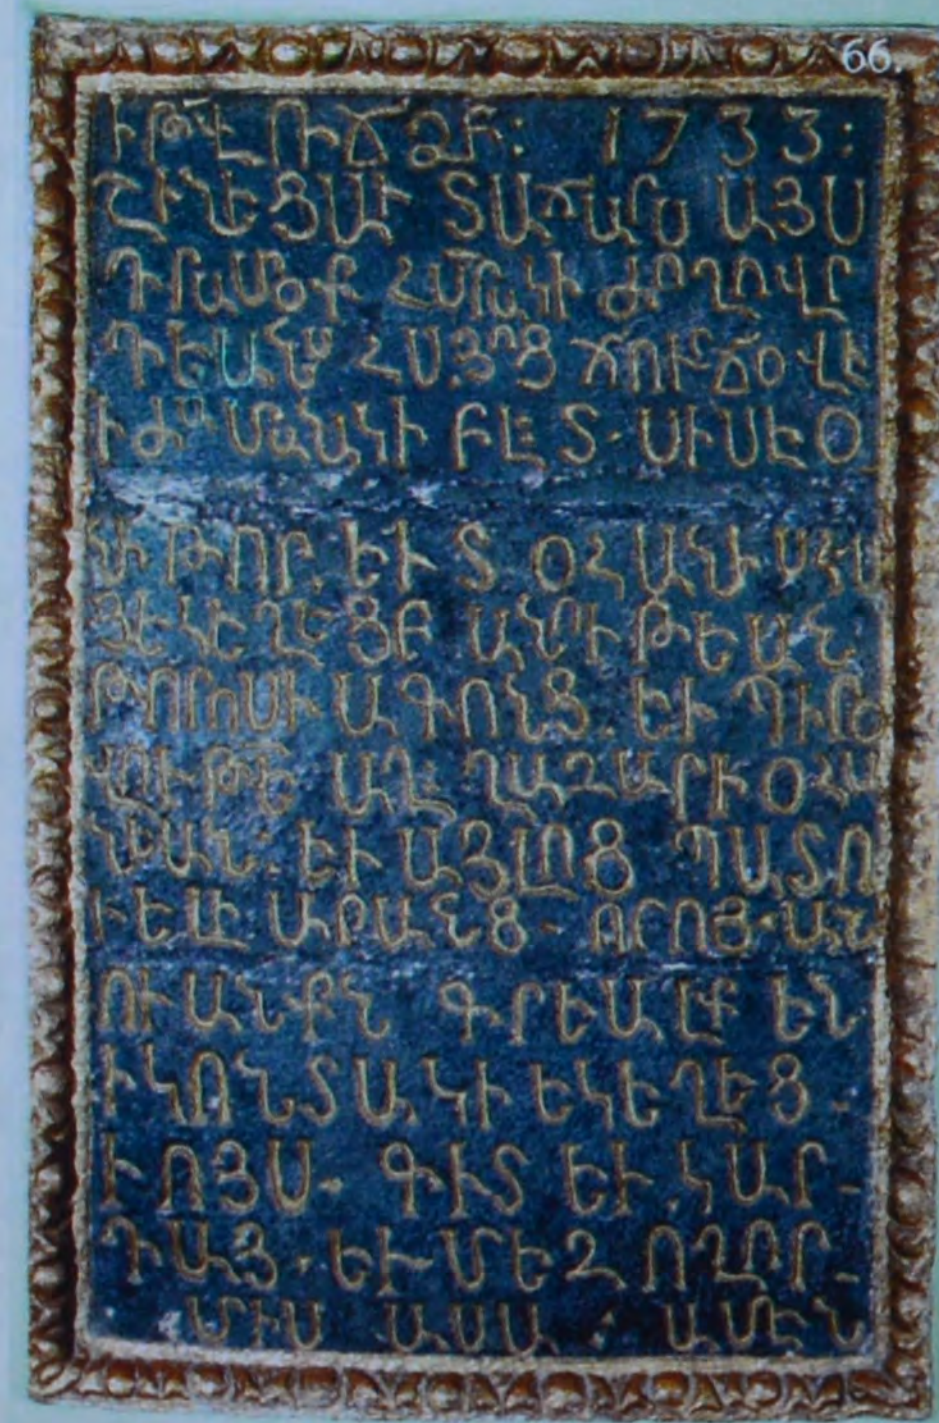 66.
ԻԹՎ ՌՃՁԲ: 1733:
ՇԻՆԵՑԱՒ ՏԱՃԱՐՍ ԱՅՍ
ԴՐԱՄՕՔ ՀՄՐԱԿԻ ԺՈՂՈՎՐ
ԴԵԱՆՍ ՀՍՅՈՑ ՃՈՒՃՕՎԷ
ԻԺՄԱՆԱԿԻ ԲԷՏ. ՍԻՍԷՕ
ՆԻ ԹՈՐ. ԵՒ Տ ՕՀԱՆԻ
ՅԵԿԵՂԵՑԲ ԱՆՈՒԹԵԱՆ
ԹՈՐՈՍԻ ԱԳՈՆՑ. ԵՒ ՊԻՐՕ
ԱՂ. ՂԱԶԱՐԻ ՕՀԱ
ՆԻԱՆ. ԵՒ ԱՅԼՈՑ ՊԱՏՈ
ՒԵԼԻ ԱՔԱՆՑ. ՈՐՈՑ ԱՆ
ՈՒԱՆՔՆ ԳՐԵԱԼՔ ԵՆ
Ի ԿՈՆՏԱԿԻ ԵԿԵՂԵՑ.
ՒՈՅՍ. ԳԻՏ ԵՒ ԿԱՐ-
ԴԱՅ. ԵՒ ՄԵԶ ՈՂՈՐ-
ՄԻՍ ԱՍԱ : ԱՄԷՆ